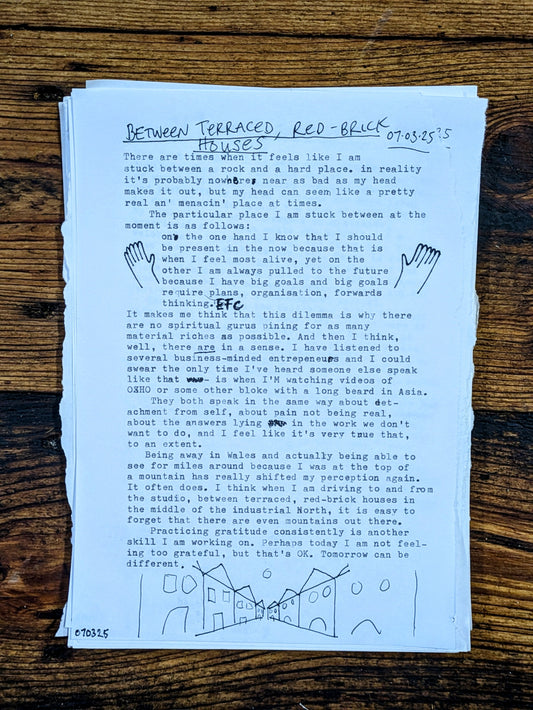 BETWEEN TERRACED, RED-BRICK
HOUSES
07.03.25
There are times when it feels like I am
stuck between a rock and a hard place. in reality
it's probably nowhere near as bad as my head
makes it out, but my head can seem like a pretty
real an' menacin' place at times.
The particular place I am stuck between at the
moment is as follows:
on the one hand I know that I should
be present in the now because that is
when I feel most alive, yet on the
other I am always pulled to the future
because I have big goals and big goals
require plans, organisation, forwards
thinking. EFC
It makes me think that this dilemma is why there
are no spiritual gurus pining for as many
material riches as possible. And then I think,
well, there are in a sense. I have listened to
several business-minded entrepeneurs and I could
swear the only time I've heard someone else speak
like that - is when I'M watching videos of
OSHO or some other bloke with a long beard in Asia.
They both speak in the same way about det-
achment from self, about pain not being real,
about the answers lying in the work we don't
want to do, and I feel like it's very true that,
to an extent.
Being away in Wales and actually being able to
see for miles around because I was at the top of
a mountain has really shifted my perception again.
It often does. I think when I am driving to and from
the studio, between terraced, red-brick houses in
the middle of the industrial North, it is easy to
forget that there are even mountains out there.
Practicing gratitude consistently is another
skill I am working on. Perhaps today I am not feel-
ing too grateful, but that's OK. Tomorrow can be
different.
070325